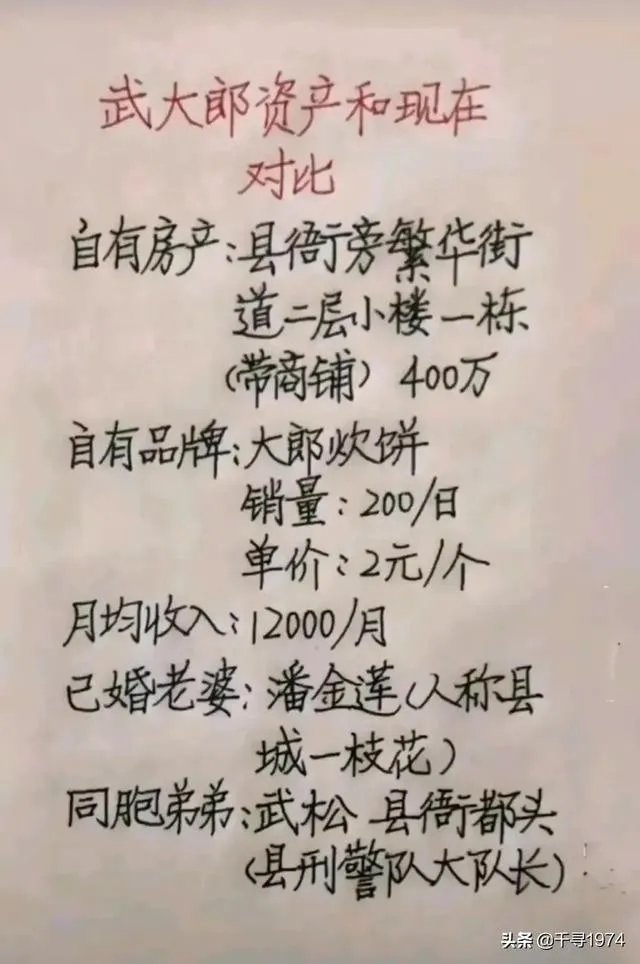 武大郎资产和现在
对比
自有房产:县衙旁繁华街
道二层小楼一栋
(带商铺) 400万
自有品牌:大郎炊饼
销量:200/日
单价:2元/个
月均收入:12000/月
已婚老婆:潘金莲(人称县
城一枝花)
同胞弟弟:武松 县衙都头
(县刑警队大队长)
头条 @千寻1974